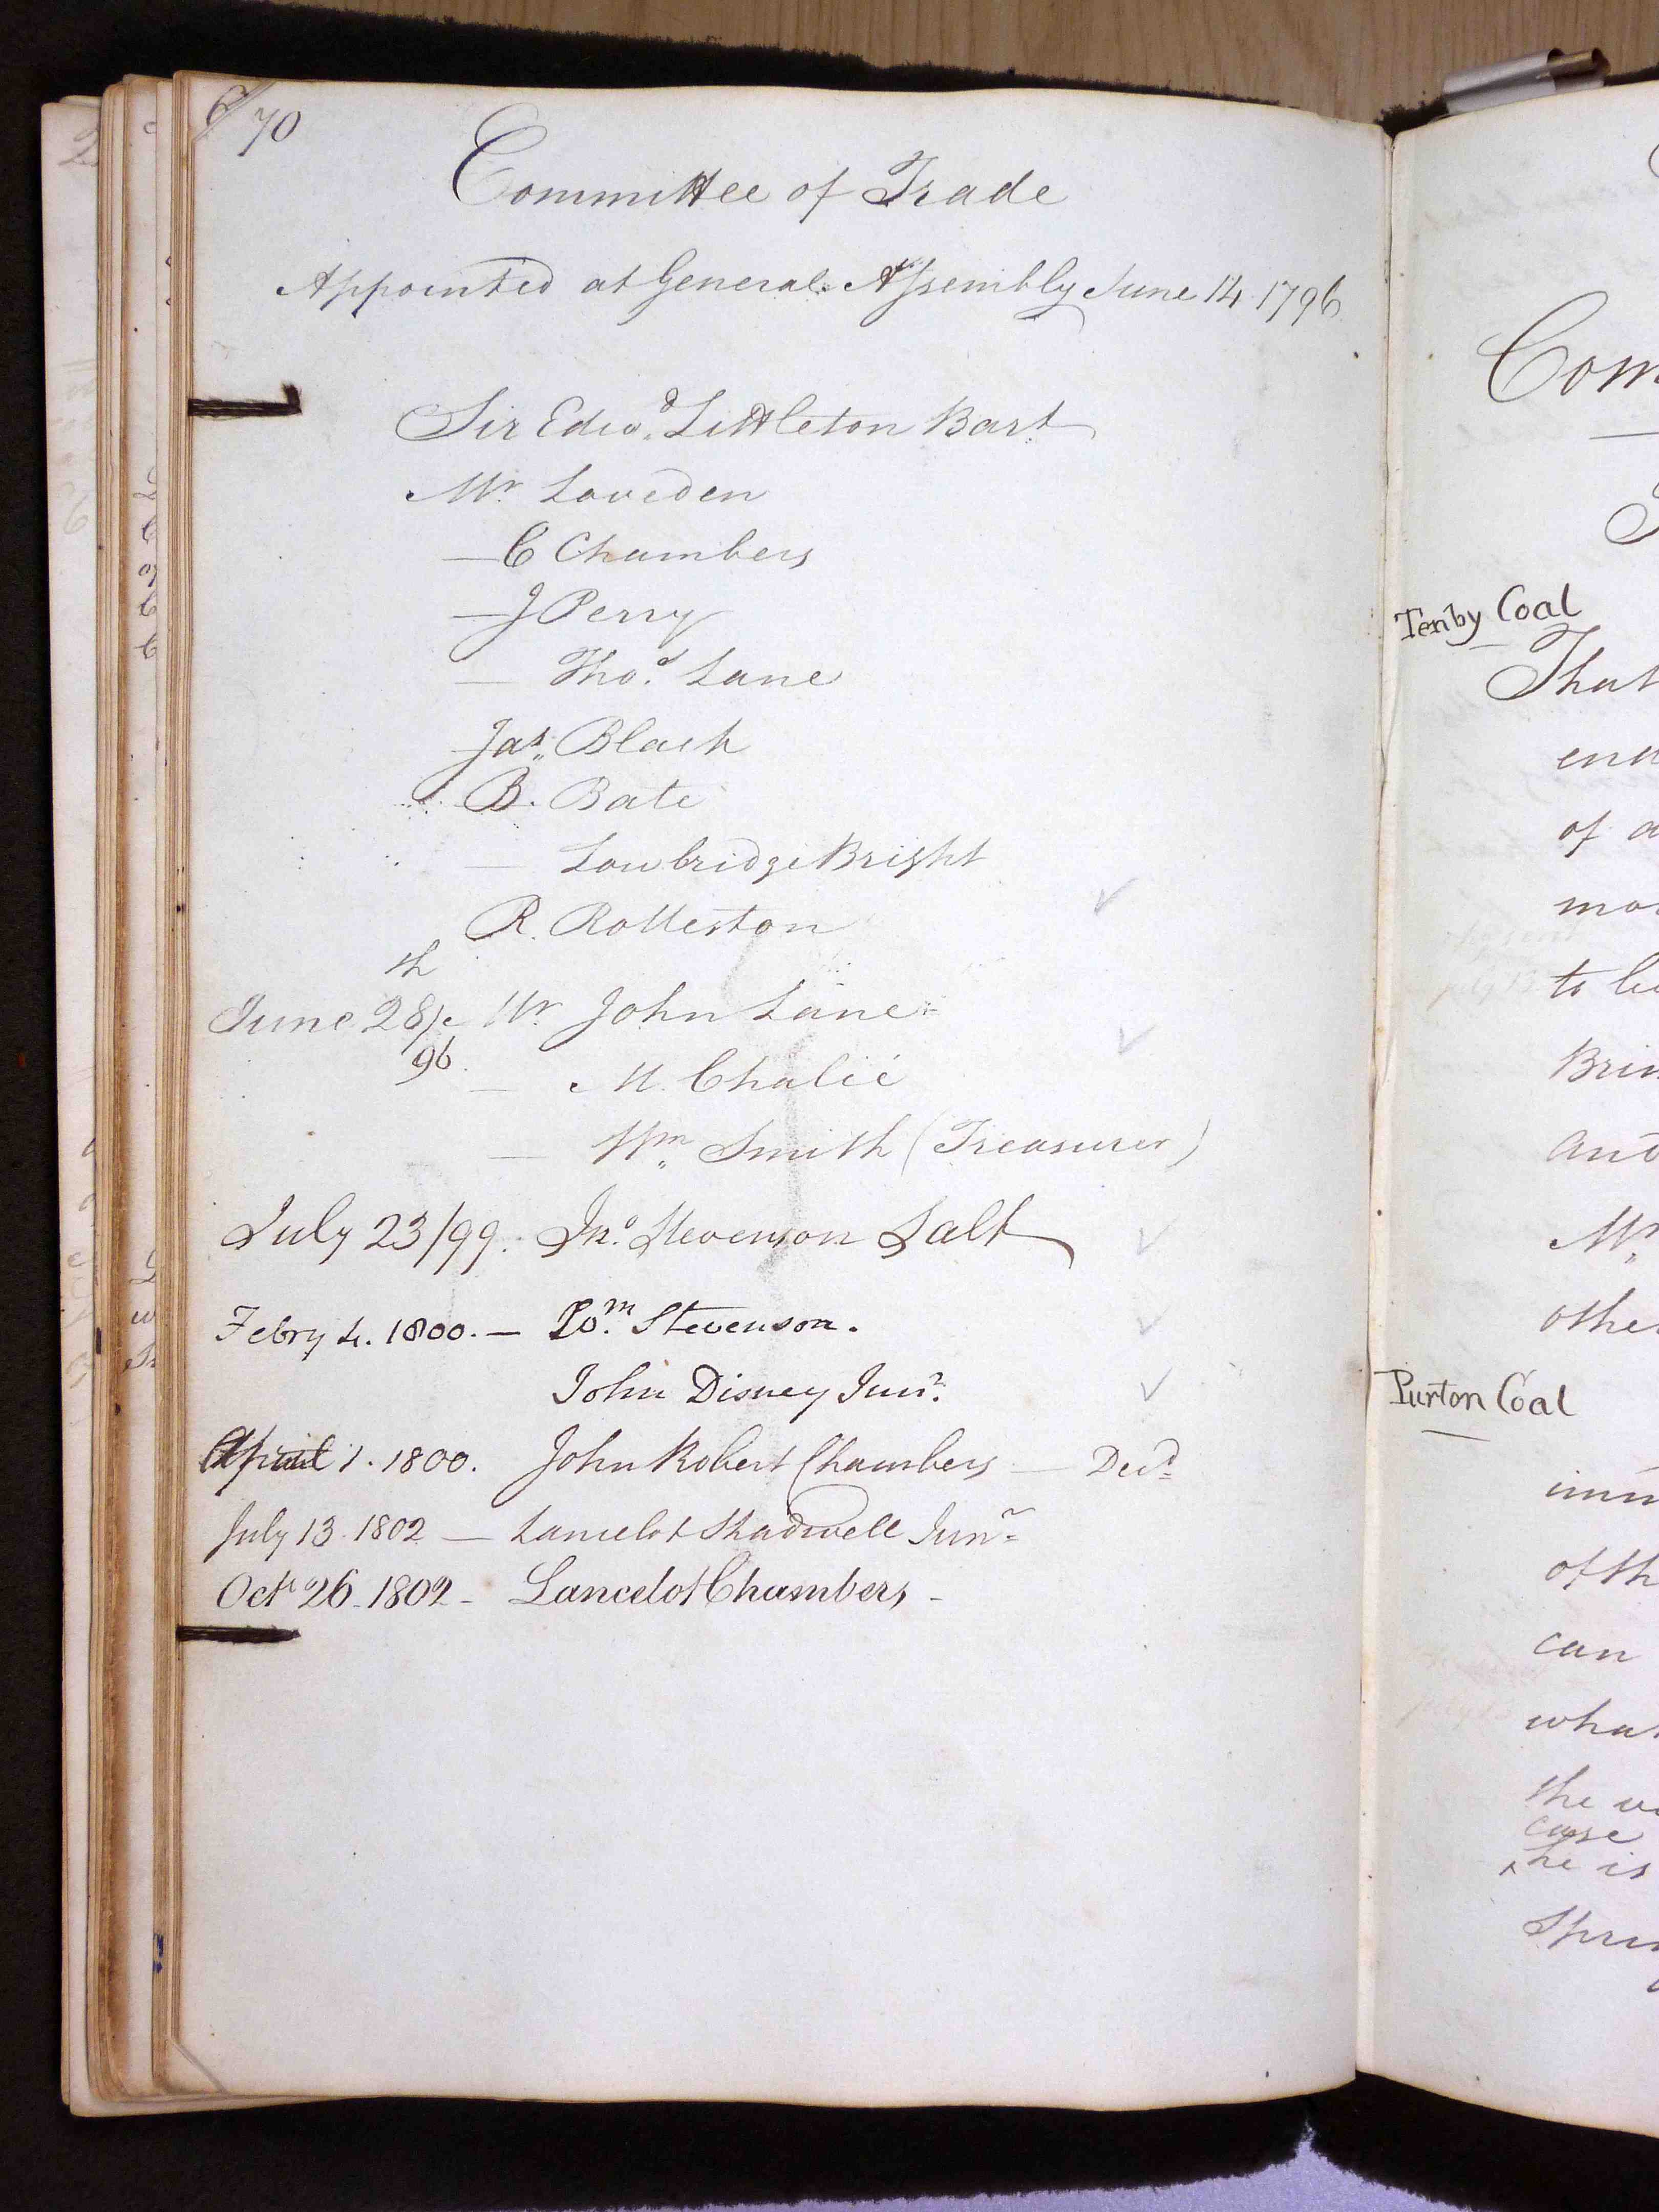 70
Committee of Trade
Appointed at General Assembly June 14 1796
Sir Edwd. Littleton Bart
Mr. Loveden
— C Chambers
— J Perry
— Thos. Lane
Jas. Black
B. Bate
— Lowbridge Bright
R. Rolleston
June 28th Mr. John Lane
96.
— M. Chalié
— Wm. Smith (Treasurer)
July 23/99. Jno. Stevenson Salt
Febry 4. 1800. — Wm. Stevenson.
John Disney Junr.
April 1. 1800. John Robert Chambers — Decd.
July 13. 1802 — Lancelot Shadwell Junr.
Octr 26. 1802 - Lancelot Chambers -
Com
Tenby Coal
That
of a
to
Mr
othe
Purton Coal
of th
can
what
the
case
^ he is